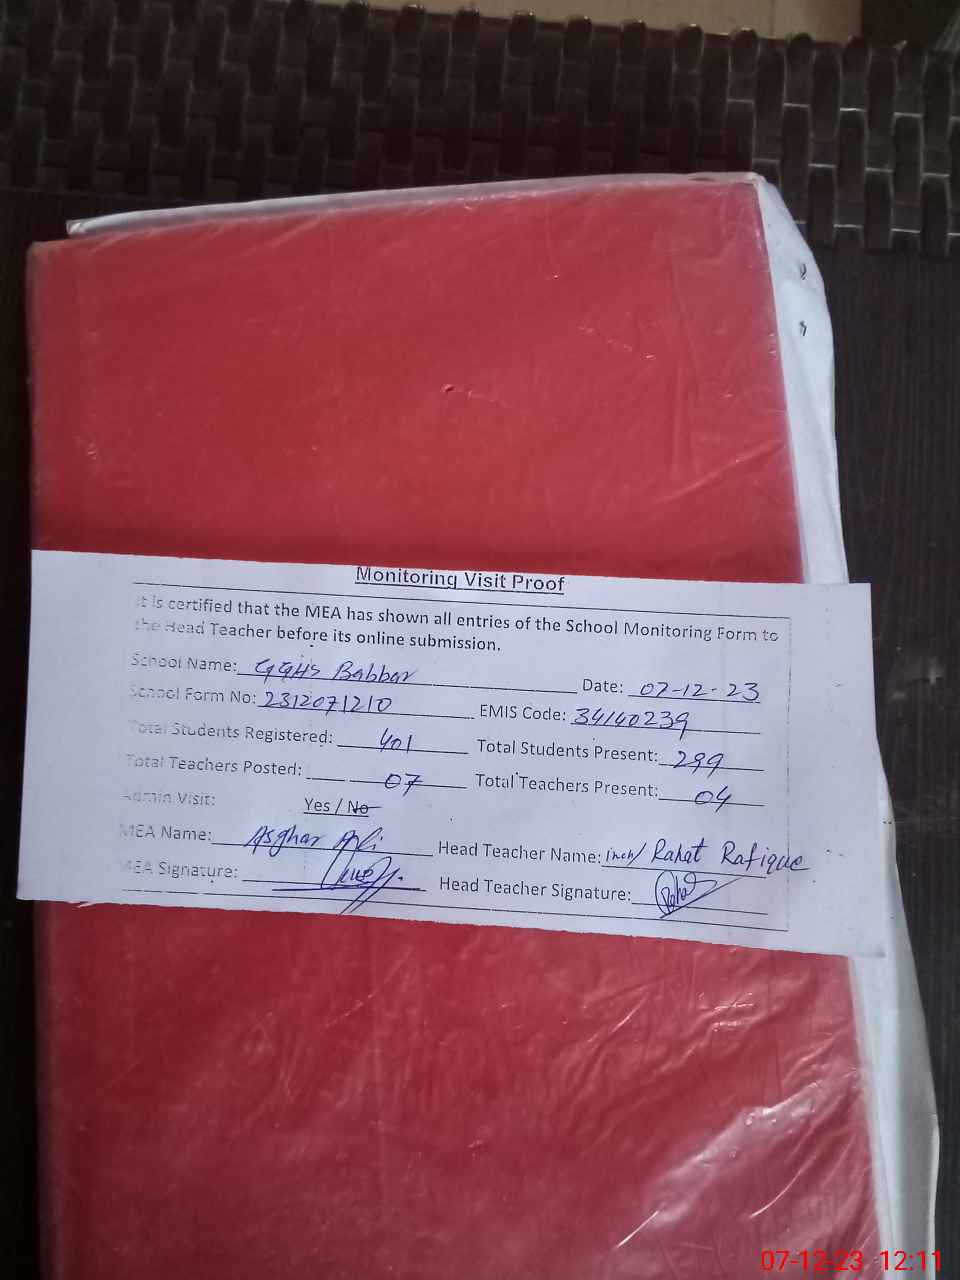 Monitoring Visit Proof
It is certified that the MEA has shown all entries of the School Monitoring Form to
the Head Teacher before its online submission.
School Name: GGHS Babbar Date: 07-12-23
School Form No: 2312071210 EMIS Code: 34140239
Total Students Registered: 401 Total Students Present: 299
Total Teachers Posted: 07 Total Teachers Present: 04
Admin Visit: Yes / No
MEA Name: Asghar Ali Head Teacher Name: inch/ Rahat Rafique
MEA Signature: Head Teacher Signature:
07-12-23 12:11